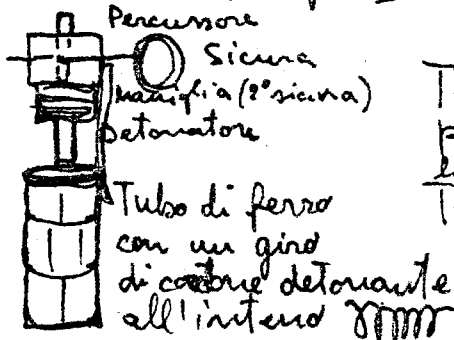 Percussore
Sicura
maniglia (2° sicura)
Detonatore
Tubo di ferro
con un giro
di cordone detonante
all'interno